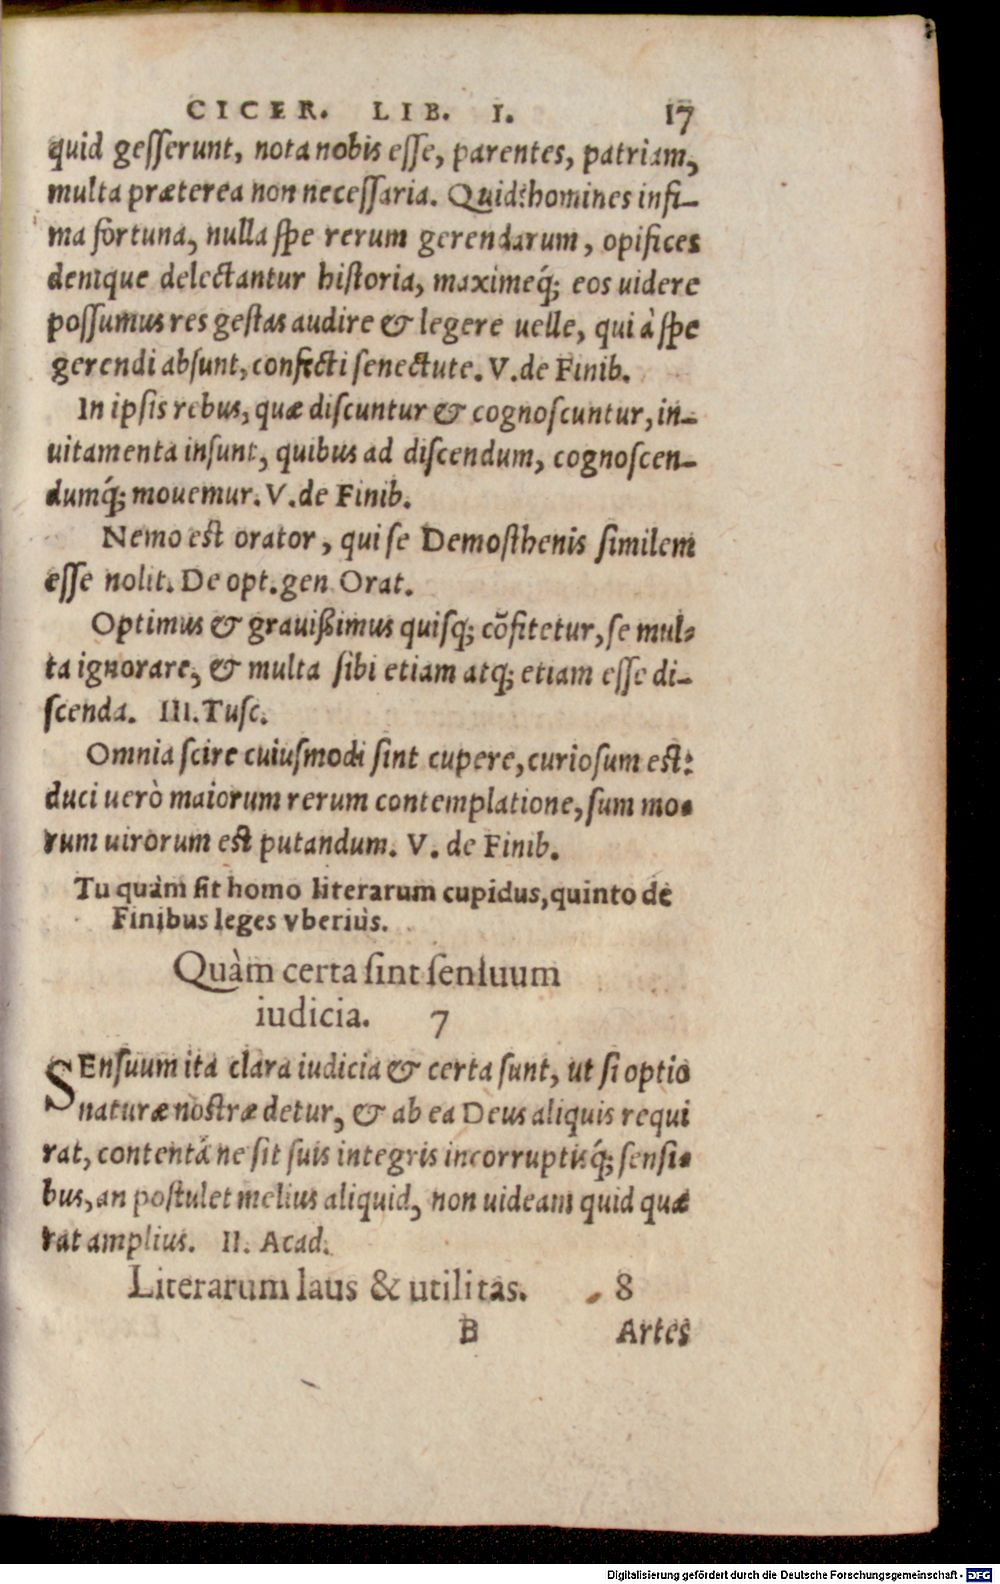 CICER. LIB. I. 17
quid geſſerunt, nota nobis eſſe, parentes, patriam,
multa præterea non neceſſaria. Quid? homines infi-
ma fortuna, nulla ſpe rerum gerendarum, opifices
denique delectantur hiſtoria, maximeq́; eos uidere
poſſumus res geſtas audire & legere uelle, qui à ſpe
gerendi abſunt, confecti ſenectute. V. de Finib.
In ipſis rebus, quæ diſcuntur & cognoſcuntur, in-
uitamenta inſunt, quibus ad diſcendum, cognoſcen-
dumq́; mouemur. V. de Finib.
Nemo eſt orator, qui ſe Demoſthenis ſimilem
eſſe nolit. De opt. gen Orat.
Optimus & grauißimus quiſq; cõfitetur, ſe mul-
ta ignorare, & multa ſibi etiam atq; etiam eſſe di-
ſcenda. III. Tuſc.
Omnia ſcire cuiuſmodi ſint cupere, curioſum eſt:
duci uerò maiorum rerum contemplatione, ſum mo-
rum uirorum eſt putandum. V. de Finib.
Tu quàm ſit homo literarum cupidus, quinto de
Finibus leges vberiùs.
Quàm certa ſint ſenſuum
iudicia. 7
SEnſuum ita clara iudicia & certa ſunt, ut ſi optio
naturæ noſtræ detur, & ab ea Deus aliquis requi
rat, contentá ne ſit ſuis integris incorruptisq́; ſenſi-
bus, an poſtulet melius aliquid, non uideam quid quæ
rat amplius. II. Acad.
Literarum laus & utilitas. 8
B Artes
Digitalisierung gefördert durch die Deutsche Forschungsgemeinschaft - DFG